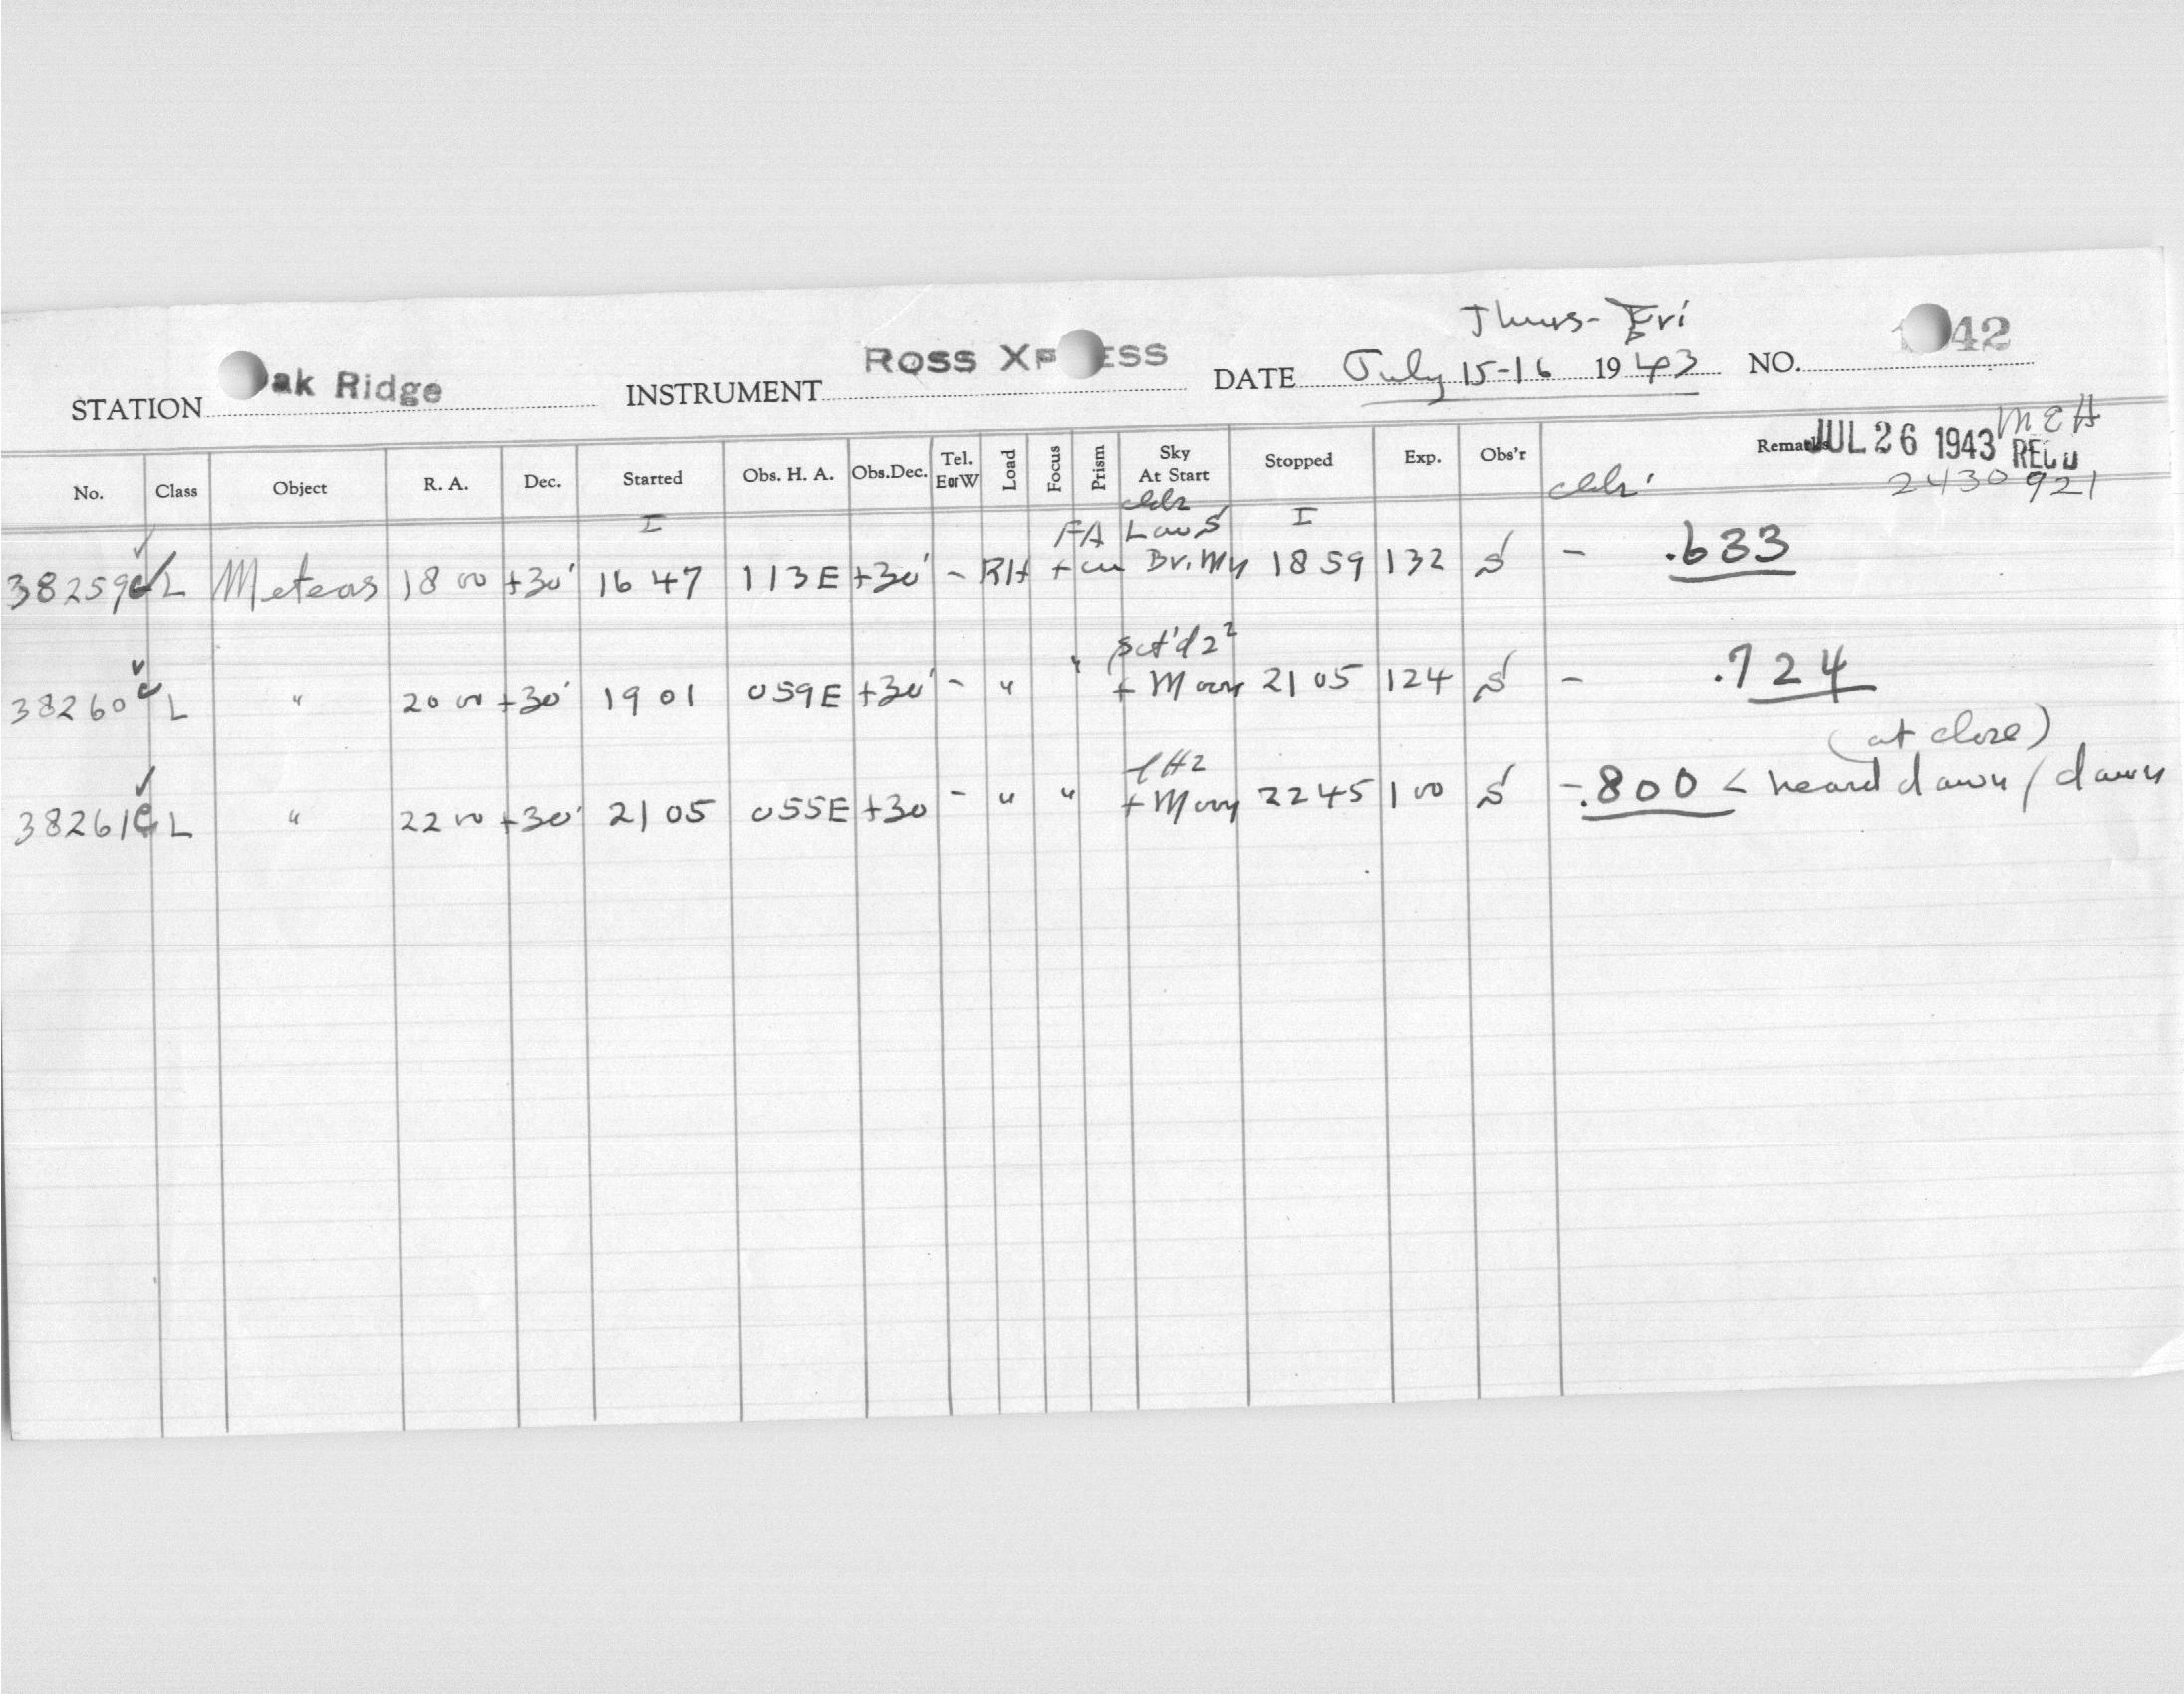 Thurs-Fri
STATION Oak Ridge INSTRUMENT ROSS XPRESS DATE July 15-16 1943 NO. 42
JUL 26 1943 REC'D MEH
No. Class Object R. A. Dec. Started Obs. H. A. Obs.Dec. Tel. EorW Load Focus Prism Sky At Start Stopped Exp. Obs'r Remarks
2430 921
I FA Low S I
38259 c L Meteors 18 00 +30° 16 47 113E +30° - RH + cu Br. My 18 59 132 S - .633
sct'd 2²
38260 c L " 20 00 +30° 19 01 059E +30° - " " + Moon 21 05 124 S - .724
(at close)
38261 c L " 22 00 +30° 21 05 055E +30 - " " + Moon 22 45 100 S - .800 < heard dawn / dawn